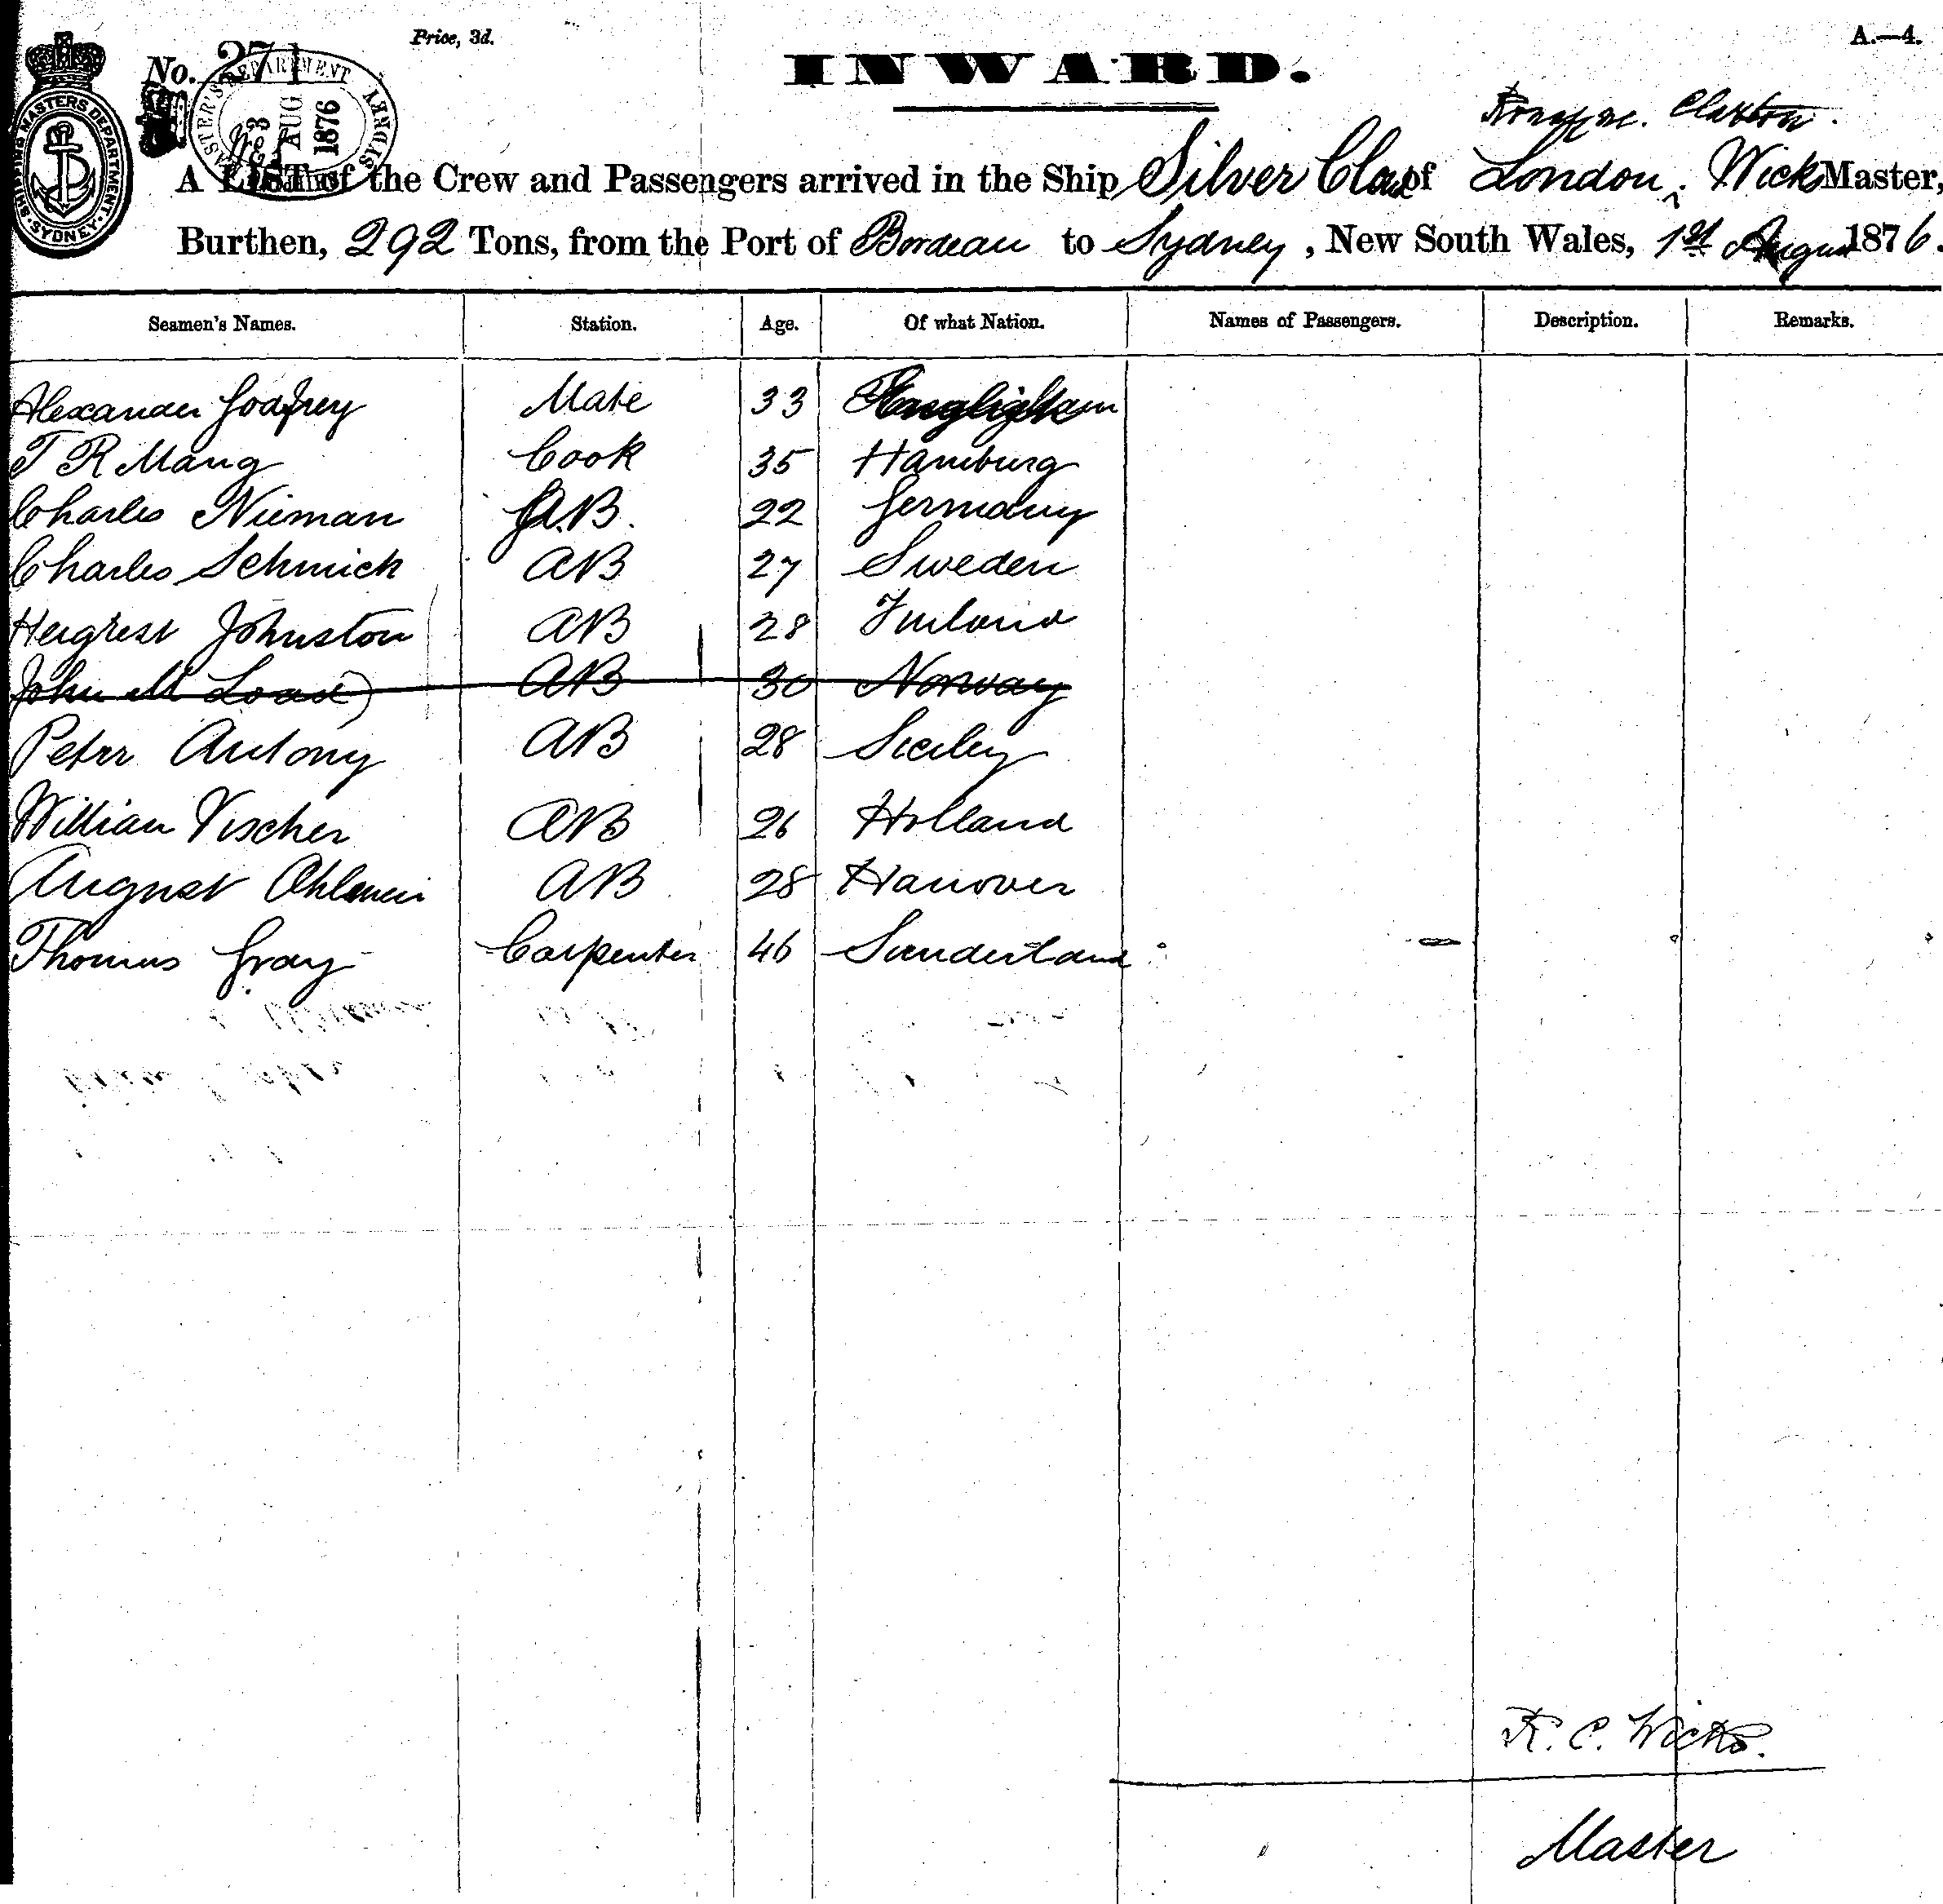 Price, 3d.
A.—4.
No. 271
INWARD.
SHIPPING MASTERS DEPARTMENT. SYDNEY.
3 AUG 1876
Claxton.
A LIST of the Crew and Passengers arrived in the Ship Silver Cloud of London, Wicks Master,
Burthen, 292 Tons, from the Port of Bordeau to Sydney, New South Wales, 1st August 1876.
Seamen's Names. Station. Age. Of what Nation. Names of Passengers. Description. Remarks.
Alexander Godfrey Mate 33
T R Mang Cook 35 Hamburg
Charles Nieman A.B. 22 Germany
Charles Schmick AB 27 Sweden
Johnston AB 28 Finland
John AB 30 Norway
Peter Antony AB 28 Siciley
William Vischer AB 26 Holland
August AB 28 Hanover
Thomas Gray Carpenter 46 Sunderland
R. C. Wicks.
Master